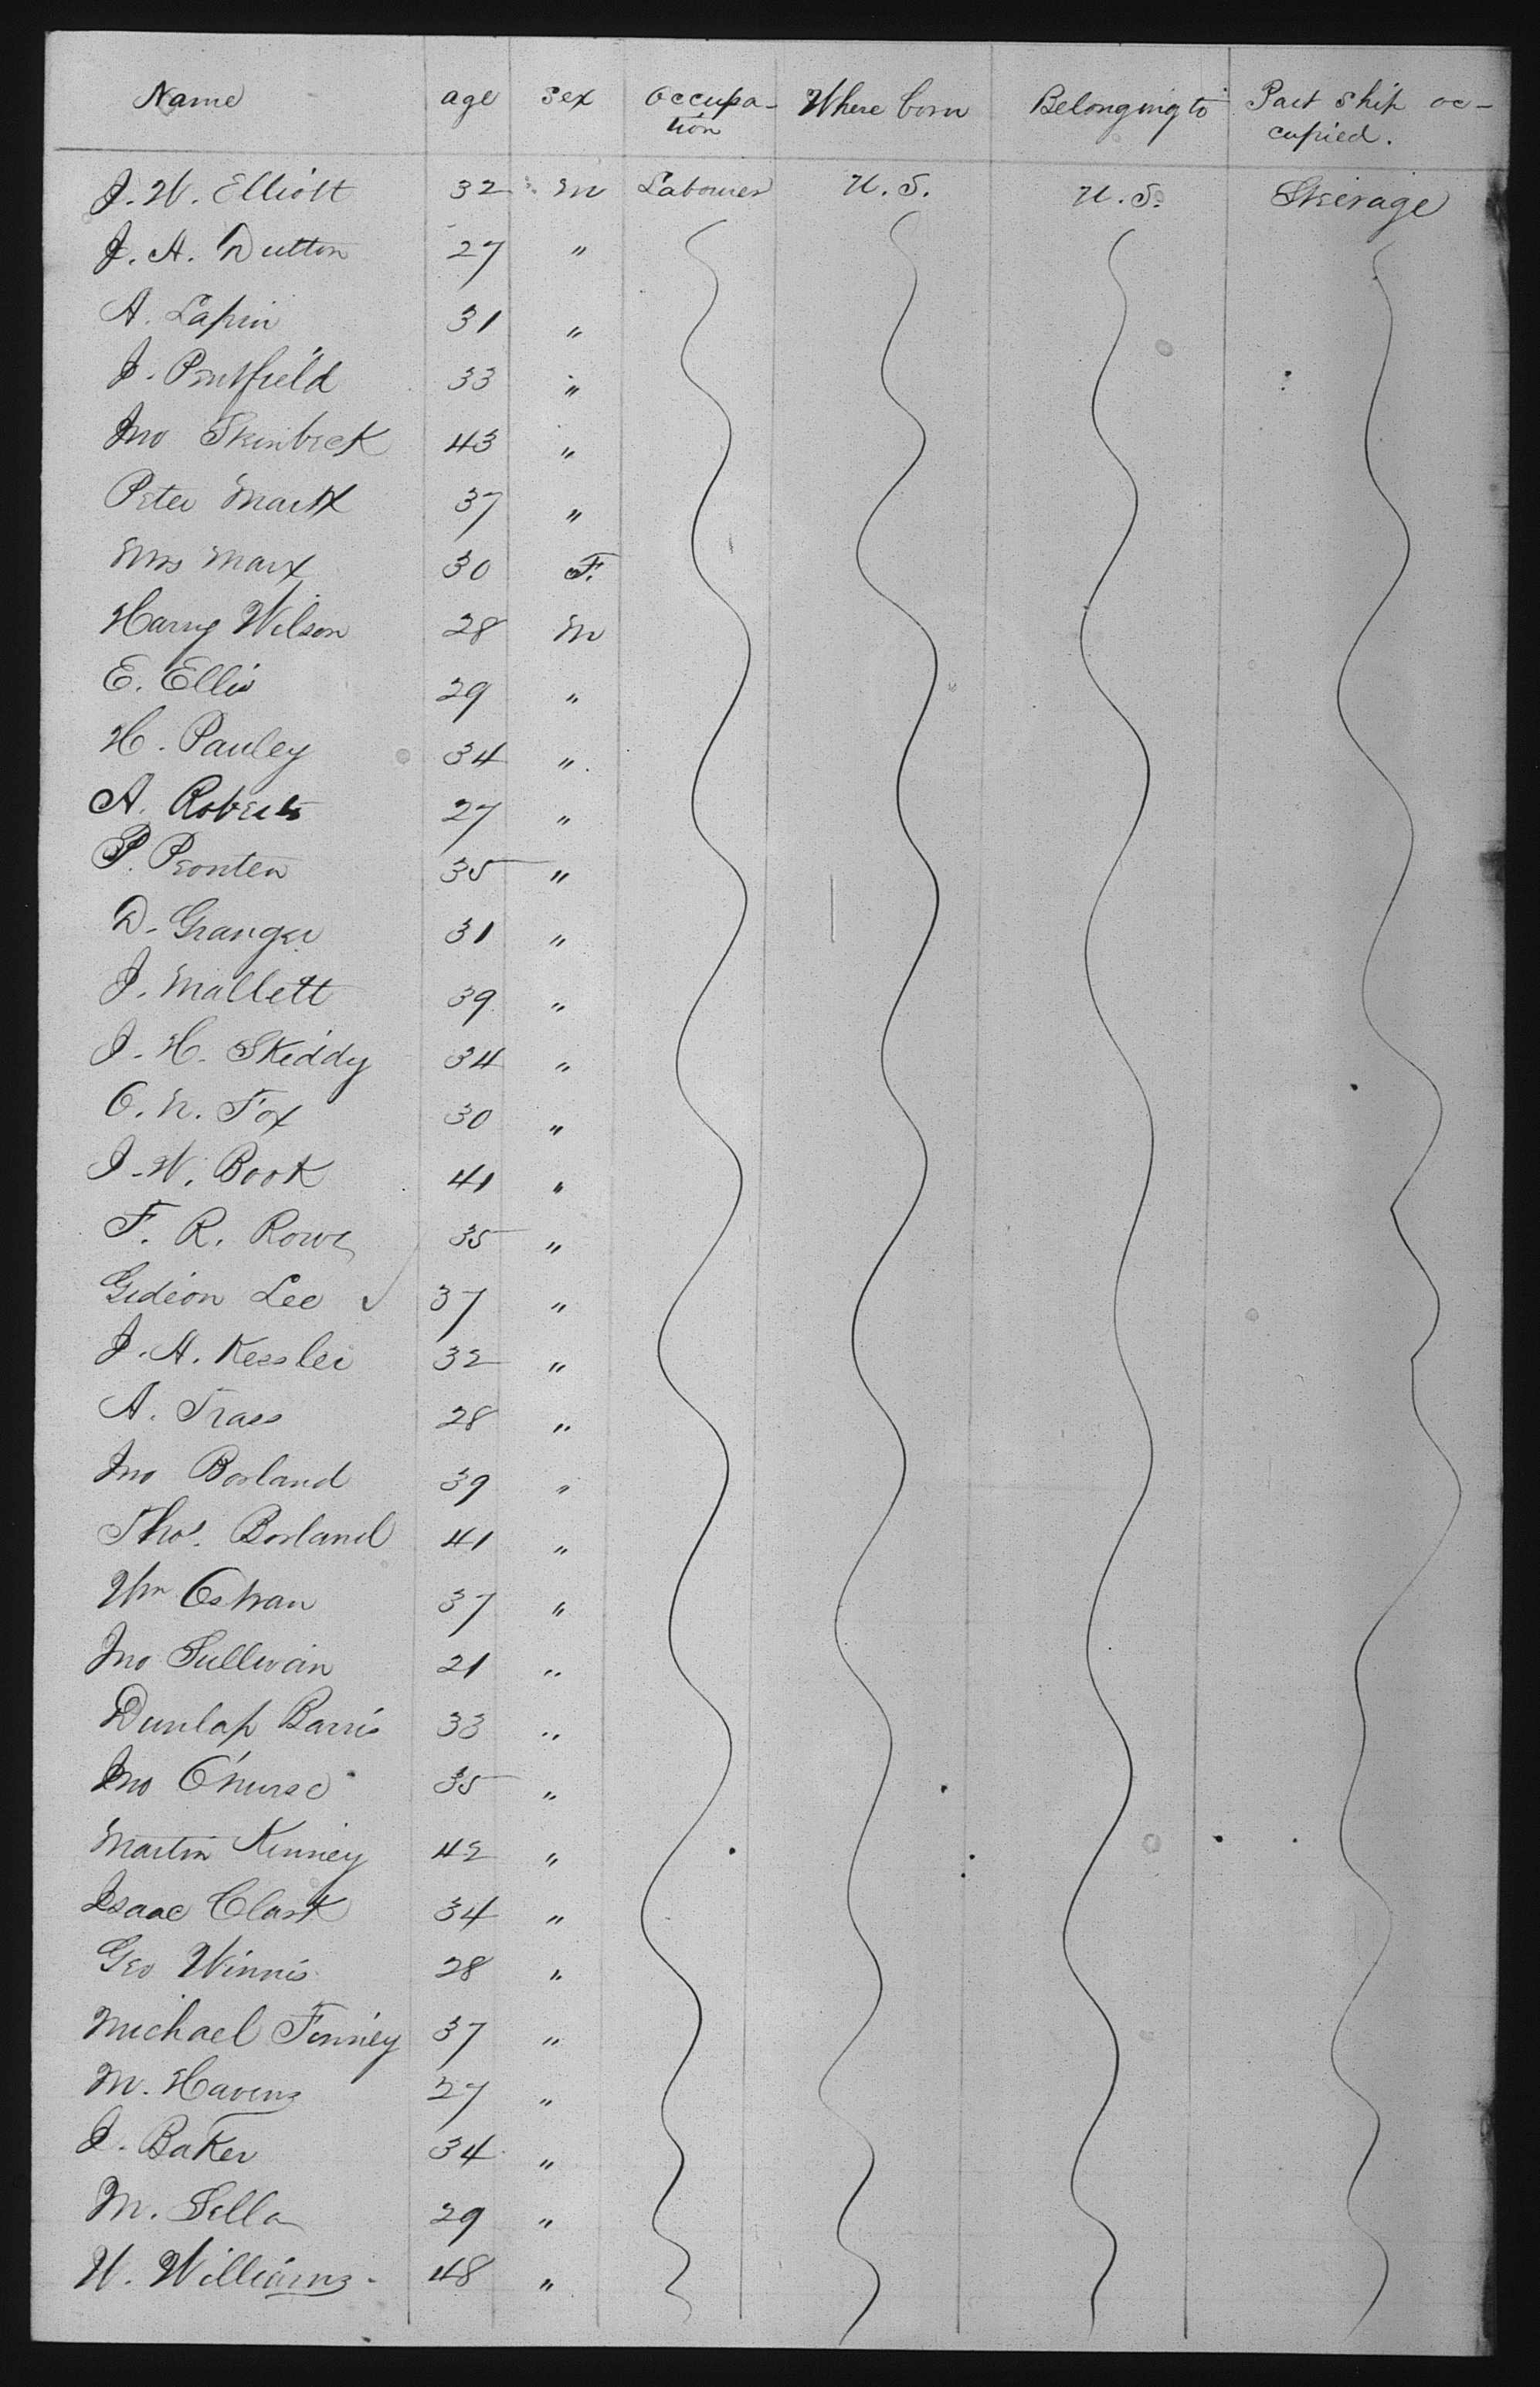 Name age Sex Occupa- Where born Belonging to Part Ship oc-
tion cupied.
J. W. Elliott 32 M Labourer U.S. U.S. Steerage
J. A. Dutton 27 "
A. Lapin 31 "
J. Pentfield 33 "
Jno 43 "
Peter Marx 37 "
Mrs Marx 30 F.
Harry Wilson 28 M
E. Ellis 29 "
H. Pauley 34 "
A. Roberts 27 "
P. Peonten 35 "
D. Granger 31 "
J. Mallett 39 "
J. H. Skiddy 34 "
O. N. Fox 30 "
J. W. Book 41 "
F. R. Rowe 35 "
Gideon Lee ✓ 37 "
J. A. Kessler 32 "
A. Trass 28 "
Jno Borland 39 "
Thos. Borland 41 "
Wm Ostran 37 "
Jno Sullivan 21 "
Dunlap Barris 33 "
Jno 35 "
Martin Kinney 42 "
Isaac Clark 34 "
Geo Winnis 28 "
Michael Finney 37 "
M. Havens 27 "
J. Baker 34 "
M. Sella 29 "
W. Williams 48 "